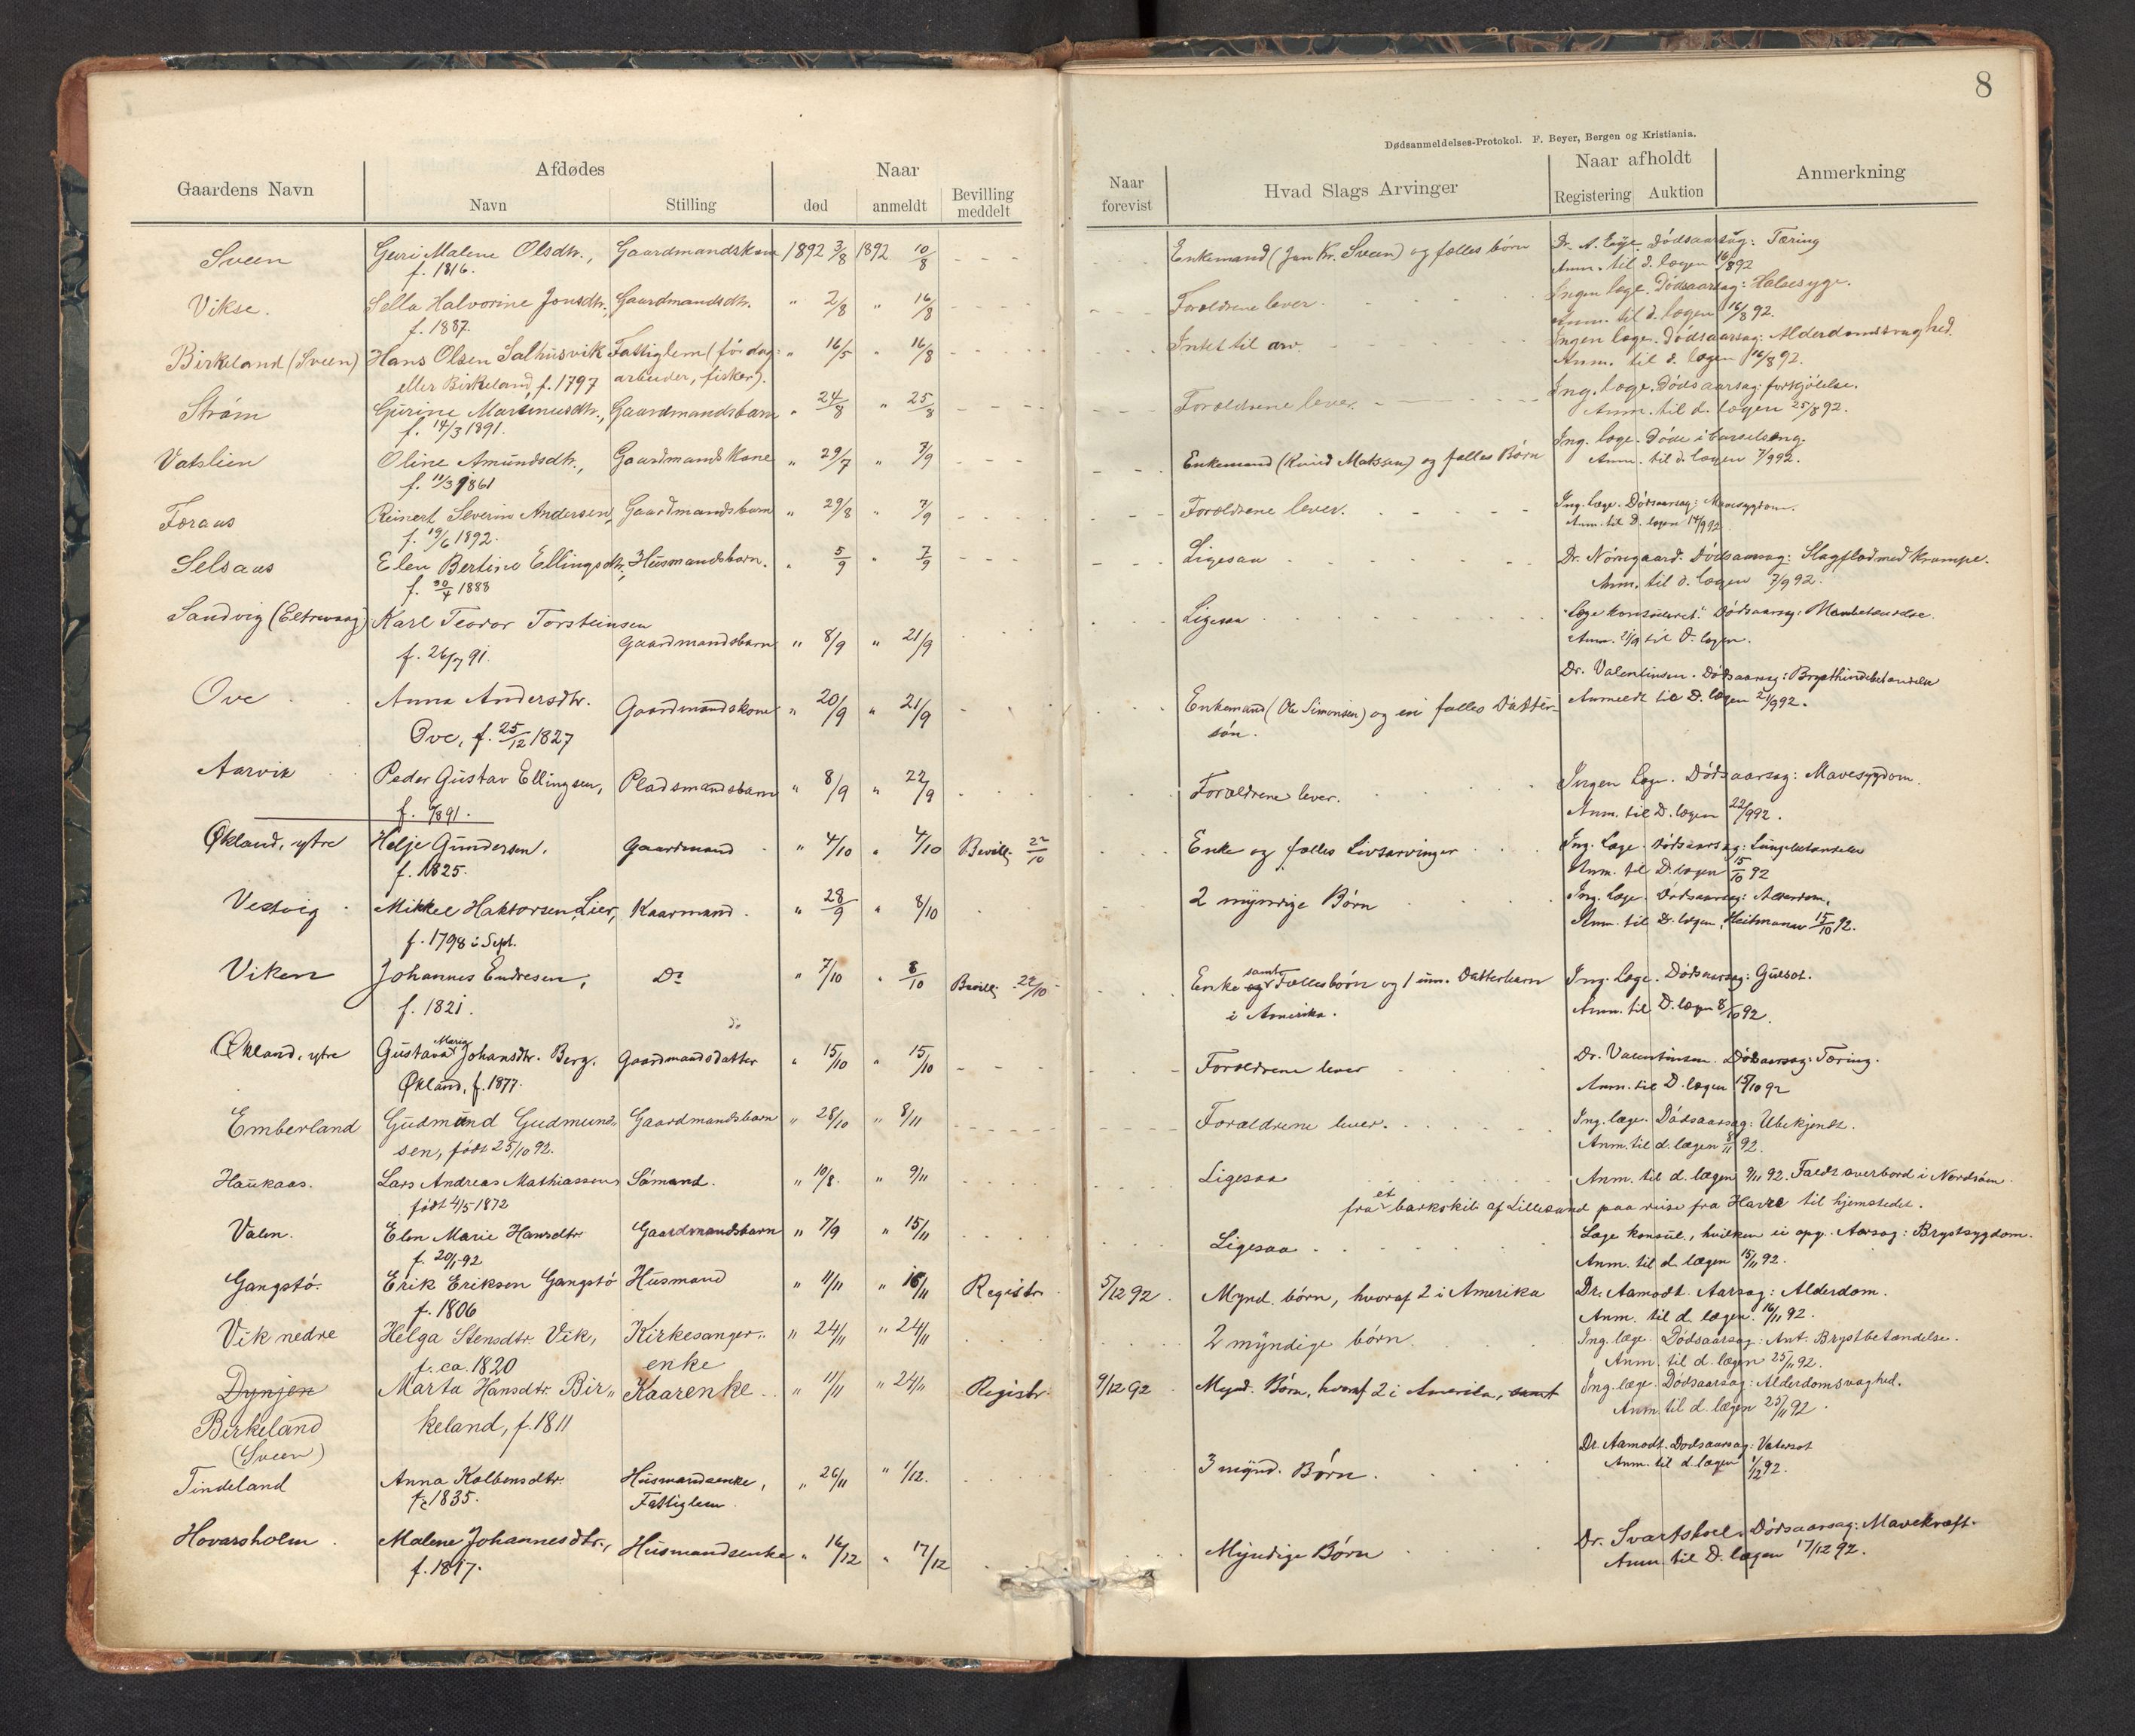 8
Dødsanmeldelses-Protokol. F. Beyer, Bergen og Kristiania.
Gaardens Navn Afdødes Naar
Navn Stilling død anmeldt Bevilling meddelt
Naar forevist Hvad Slags Arvinger Naar afholdt Anmerkning
Registering Auktion
Sveen Guri Malene Olsdtr., Gaardmandskone 1892 3/8 1892 10/8
f. 1816.
Vikse. Sella Halvorine Jonsdtr., Gaardmandsdtr. " 2/8 " 16/8
f. 1887.
Birkeland (Sveen) Hans Olsen Salhusvik Fattiglem (før dag- " 16/5 " 16/8
eller Birkeland, f. 1797 arbeider, fisker).
Strøm Gurine Martinusdtr., Gaardmandsbarn " 24/8 " 25/8
f. 14/3 1891.
Vatslien Oline Amundsdtr., Gaardmandskone " 29/7 " 7/9
f. 11/3 1861
Foraas Reinert Severin Andersen, Gaardmandsbarn " 29/8 " 7/9
f. 19/6 1892.
Selsaas Elen Bertine Ellingsdtr., Husmandsbarn. " 5/9 " 7/9
f. 30/4 1888
Sandvig (Eltrevaag) Karl Teodor Torsteinsen
Gaardmandsbarn " 8/9 " 21/9
f. 26/7 91.
Ove Anna Andersdtr. Gaardmandskone " 20/9 " 21/9
Ove, f. 25/12 1827
Aarvik Peder Gustav Ellingsen, Pladsmandsbarn " 8/9 " 22/9
f. 891.
Økland, ytre Helje Gundersen, Gaardmand " 4/10 " 4/10 Bevillg 22/10
f. 1825.
Vestvig Mikkel Haktorsen Lier, Kaarmand. " 28/9 " 8/10
f. 1798 i Sept.
Viken Johannes Endresen, Do " 7/10 " 8/10 Bevillg 22/10
f. 1821.
Økland, ytre Gustava Maria Johansdtr. Berg. Gaardmandsdatter " 15/10 " 15/10
Økland, f. 1877.
Emberland Gudmund Gudmund- Gaardmandsbarn " 28/10 " 8/11
sen, født 25/10 92.
Haukaas. Lars Andreas Mathiassen, Sømand. " 10/8 " 9/11
født 4/5 1872
Valen. Elen Marie Hansdtr. Gaardmandsbarn " 7/9 " 15/11
f. 20/1 92
Gangstø. Erik Eriksen Gangstø Husmand " 11/11 " 16/11 Registr.
f. 1806
Vik nedre Helga Stensdtr. Vik, Kirkesanger- " 24/11 " 24/11
f. ca. 1820 enke
Dynjen Marta Hansdtr. Bir- Kaarenke " 11/11 " 24/11 Registr.
Birkeland keland, f. 1811
(Sveen)
Tindeland Anna Kolbensdtr. Husmandsenke, " 26/11 " 1/12.
f. 1835. Fattiglem.
Hovarsholm Malene Johannesdtr., Husmandsenke " 16/12 " 17/12
f. 1817.
Enkemand (Jan Kr. Sveen) og fælles børn Dr. A. Dødsaarsag: Tæring
Anm. til d. lægen 16/8 92
Forældrene lever. Ingen læge. Dødsaarsag: Halsesyge.
Anm. til d. lægen 16/8 92.
Intet til arv. Ingen læge. Dødsaarsag: Alderdomssvaghed.
Anm. til d. lægen 16/8 92.
Forældrene lever. Ing. læge. Dødsaarsag: forkjølelse.
Anm. til d. lægen 25/8 92.
Enkemand (Knud Matssen) og fælles Børn Ing. læge. Døde i barselseng.
Anm. til d. lægen 7/9 92.
Forældrene lever. Ing. læge. Dødsaarsag: Mavesygdom.
Anm. til D. lægen 14/9 92
Ligesaa Dr. Nørregaard. Dødsaarsag: Slagflod med Krampe.
Anm. til d. lægen 7/9 92.
Ligesaa "Læge konsuleret." Dødsaarsag:
Anm. 21/9 til D. lægen.
Enkemand (Ole Simonsen) og en fælles Datter- Dr. Valentinsen. Dødsaarsag: Brysthindebetændelse
søn. Anmeldt til D. lægen 21/9 92.
Forældrene lever. Ingen læge. Dødsaarsag: Mavesygdom.
Anm. til D. lægen 22/9 92.
Enke og fælles Livsarvinger Ing. Læge. Dødsaarsag: Lungebetændelse
Anm. til D. lægen 15/10 92
2 myndige Børn Ing. Læge. Dødsaarsag: Alderdom.
Anm. til D. lægen, Heitmann 15/10 92.
Enke og samt Fællesbørn og 1 um. Datterbarn Ing. Læge. Dødsaarsag: Gulsot.
i Amerika. Anm. til D. lægen 8/10 92.
Forældrene lever Dr. Valentinsen. Dødsaarsag: Tæring.
Anm. til D. lægen 15/10 92
Forældrene lever. Ing. læge. Dødsaarsag: Ubekjendt.
Anm. til d. lægen 8/11 92.
Ligesaa Anm. til d. lægen 9/11 92. Faldt overbord i Nordsøen.
fra et barkskib af Lillesand paa reise fra Havre til hjemstedet.
Ligesaa Læge konsul., hvilken ei opg. Aarsag: Brystsygdom.
Anm. til d. lægen 15/11 92.
5/12 92. Mynd. børn, hvoraf 2 i Amerika Dr. Aamodt. Aarsag: Alderdom.
Anm. til d. lægen 16/11 92.
2 myndige børn. Ing. læge. Dødsaarsag: Ant. Brystbetændelse.
Anm. til d. lægen 25/11 92.
9/12 92 Mynd. Børn, hvoraf 2 i Amerika, samt Ing. læge. Dødsaarsag: Alderdomsvaghed.
Anm. til d. lægen 25/11 92.
3 mynd. Børn. Dr. Aamodt. Dødsaarsag: Vatersot
Anm. til d. lægen 1/12 92.
Myndige Børn Dr. Svartshol. Dødsaarsag: Mavekræft.
Anm. til D. lægen 17/12 92.